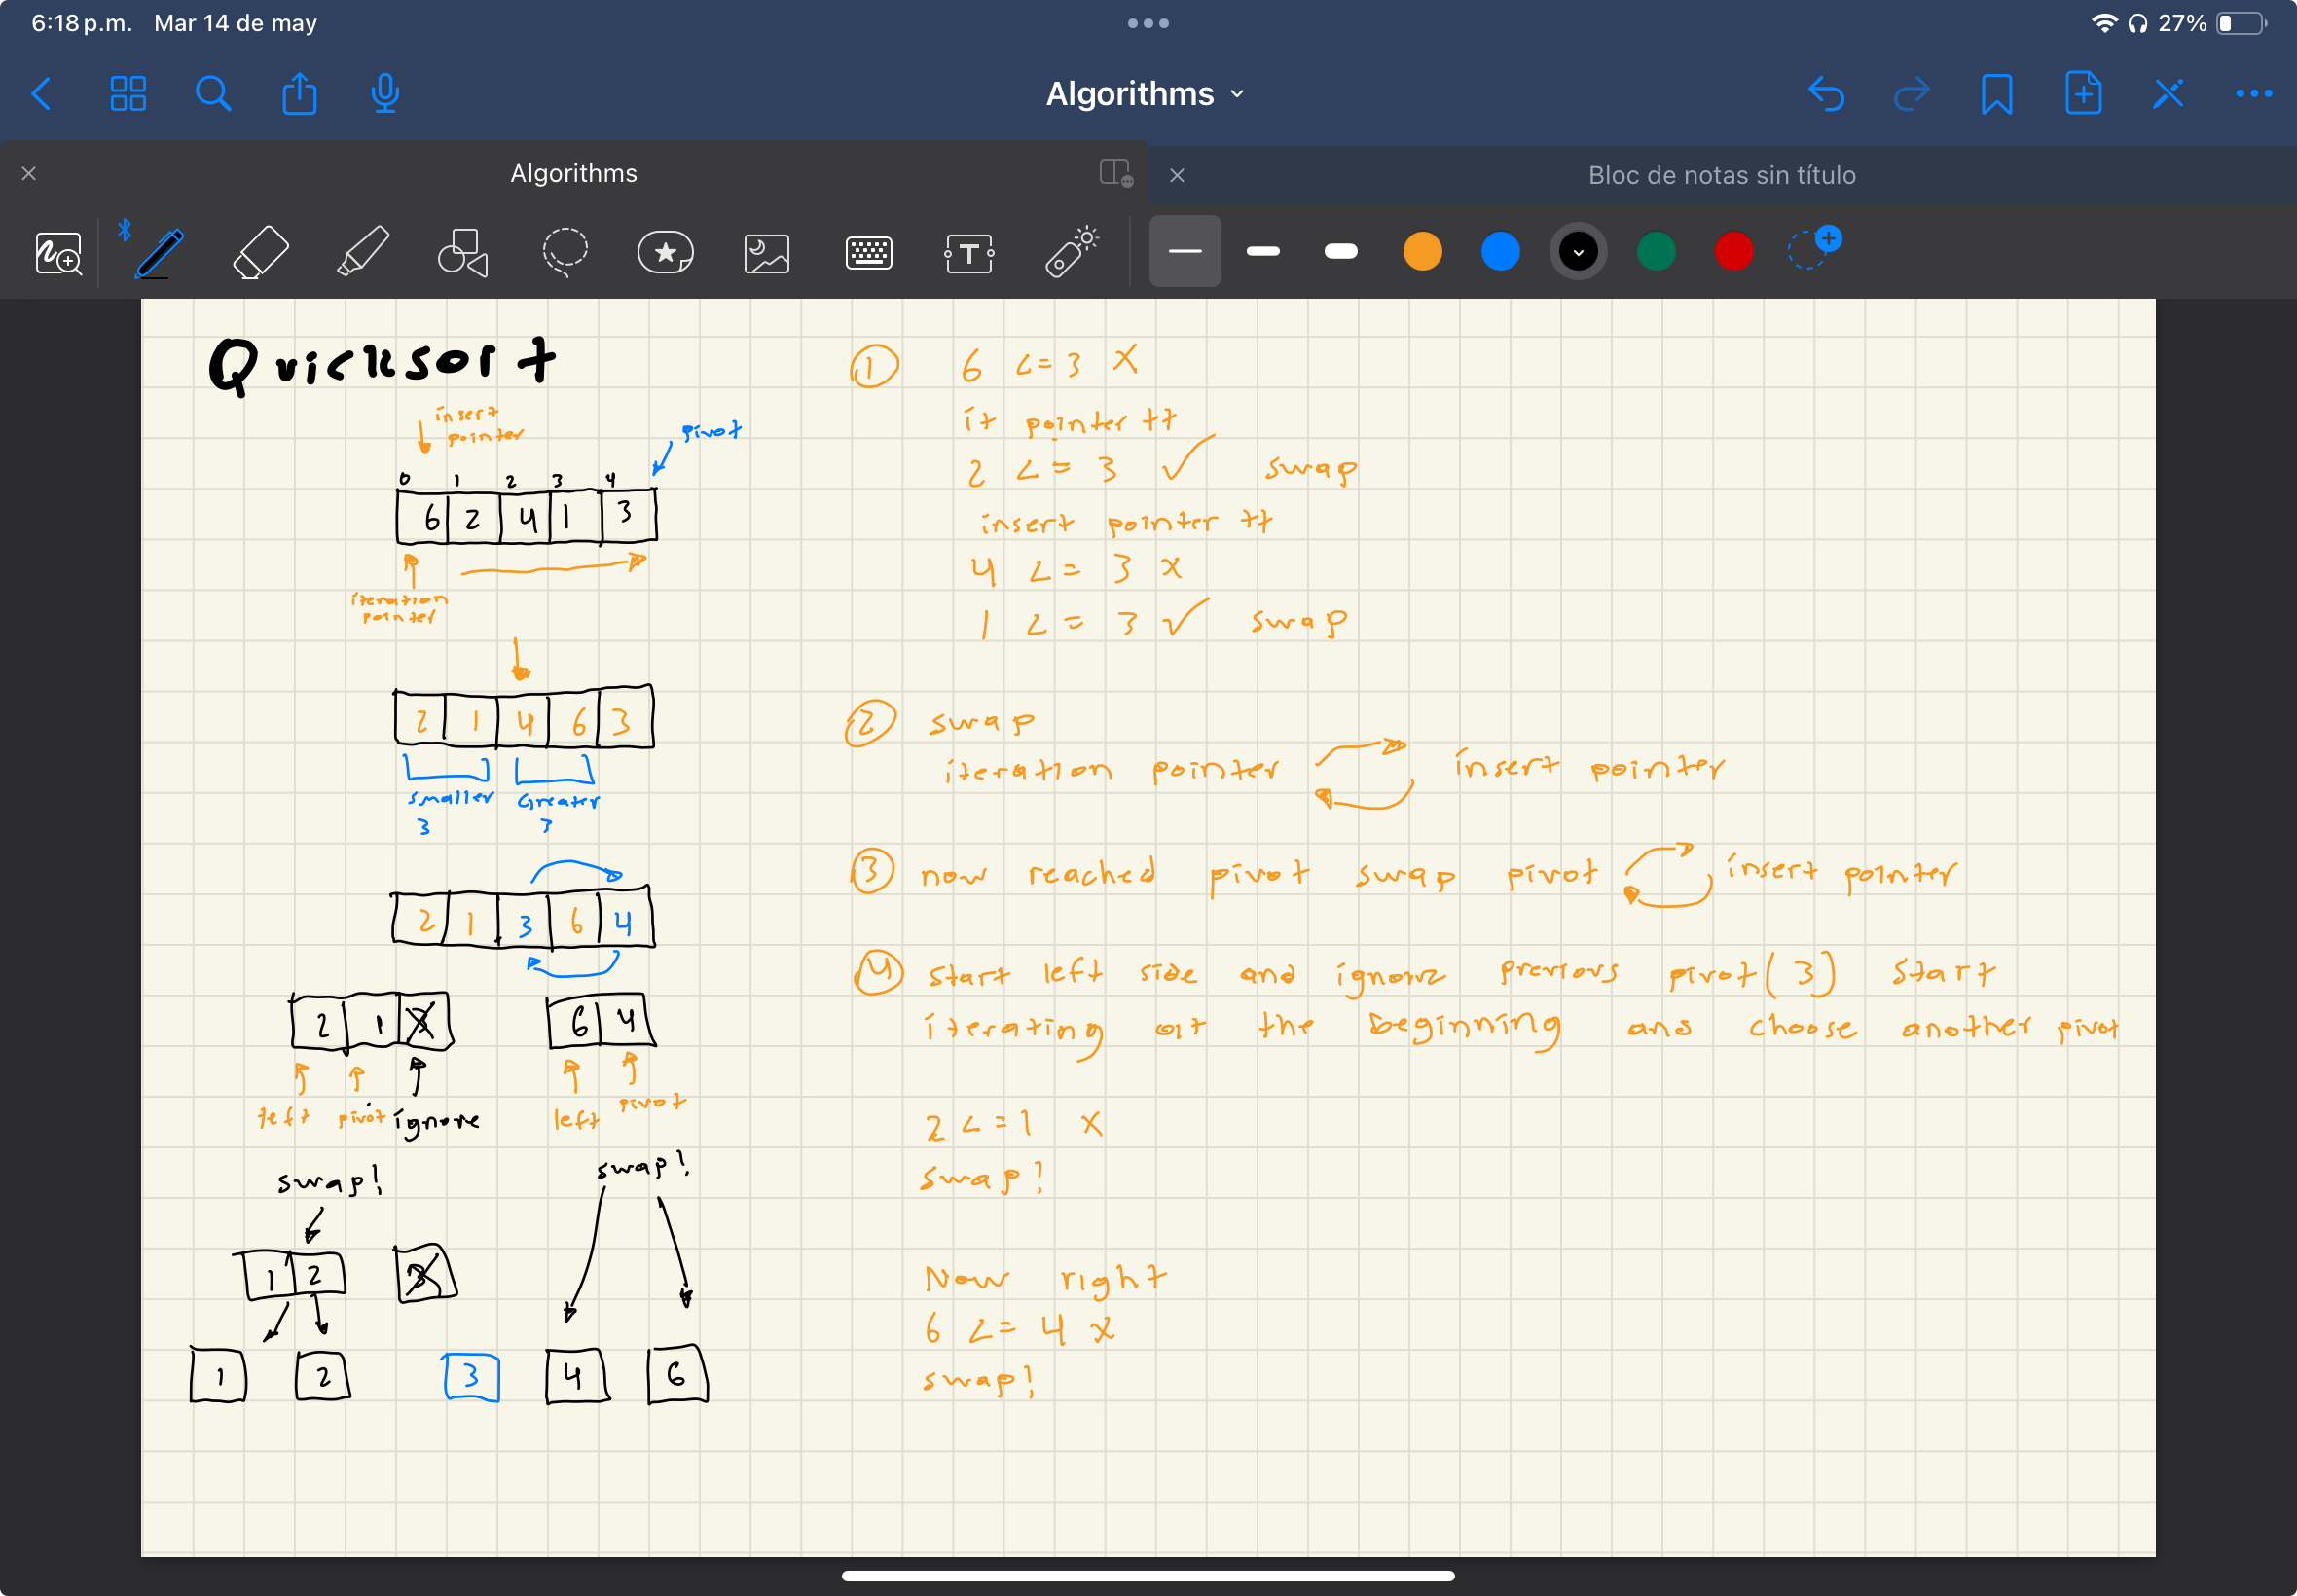 6:18 p.m. Mar 14 de may
27%
Algorithms
Algorithms
Bloc de notas sin título
T
Quicksort
insert
pointer
pivot
0 1 2 3 4
6 2 4 1 3
iteration
pointer
2 1 4 6 3
smaller Greater
3 3
2 1 3 6 4
2 1 3 6 4
left pivot ignore left pivot
swap! swap!
1 2 3
1 2 3 4 6
1 6 <= 3 X
it pointer ++
2 <= 3 ✓ swap
insert pointer ++
4 <= 3 x
1 <= 3 ✓ swap
2 swap
iteration pointer insert pointer
3 now reached pivot swap pivot insert pointer
4 start left side and ignore previous pivot (3) start
iterating at the beginning and choose another pivot
2 <= 1 x
swap!
Now right
6 <= 4 x
swap!